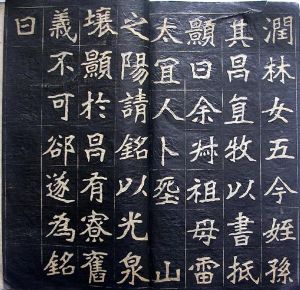 潤林女五今姪孫
其昌直牧以書抵
顥曰余叔祖母雷
太宜人卜 山
之陽請銘以光泉
壤顥於昌有寮舊
義不可郤遂為銘
曰